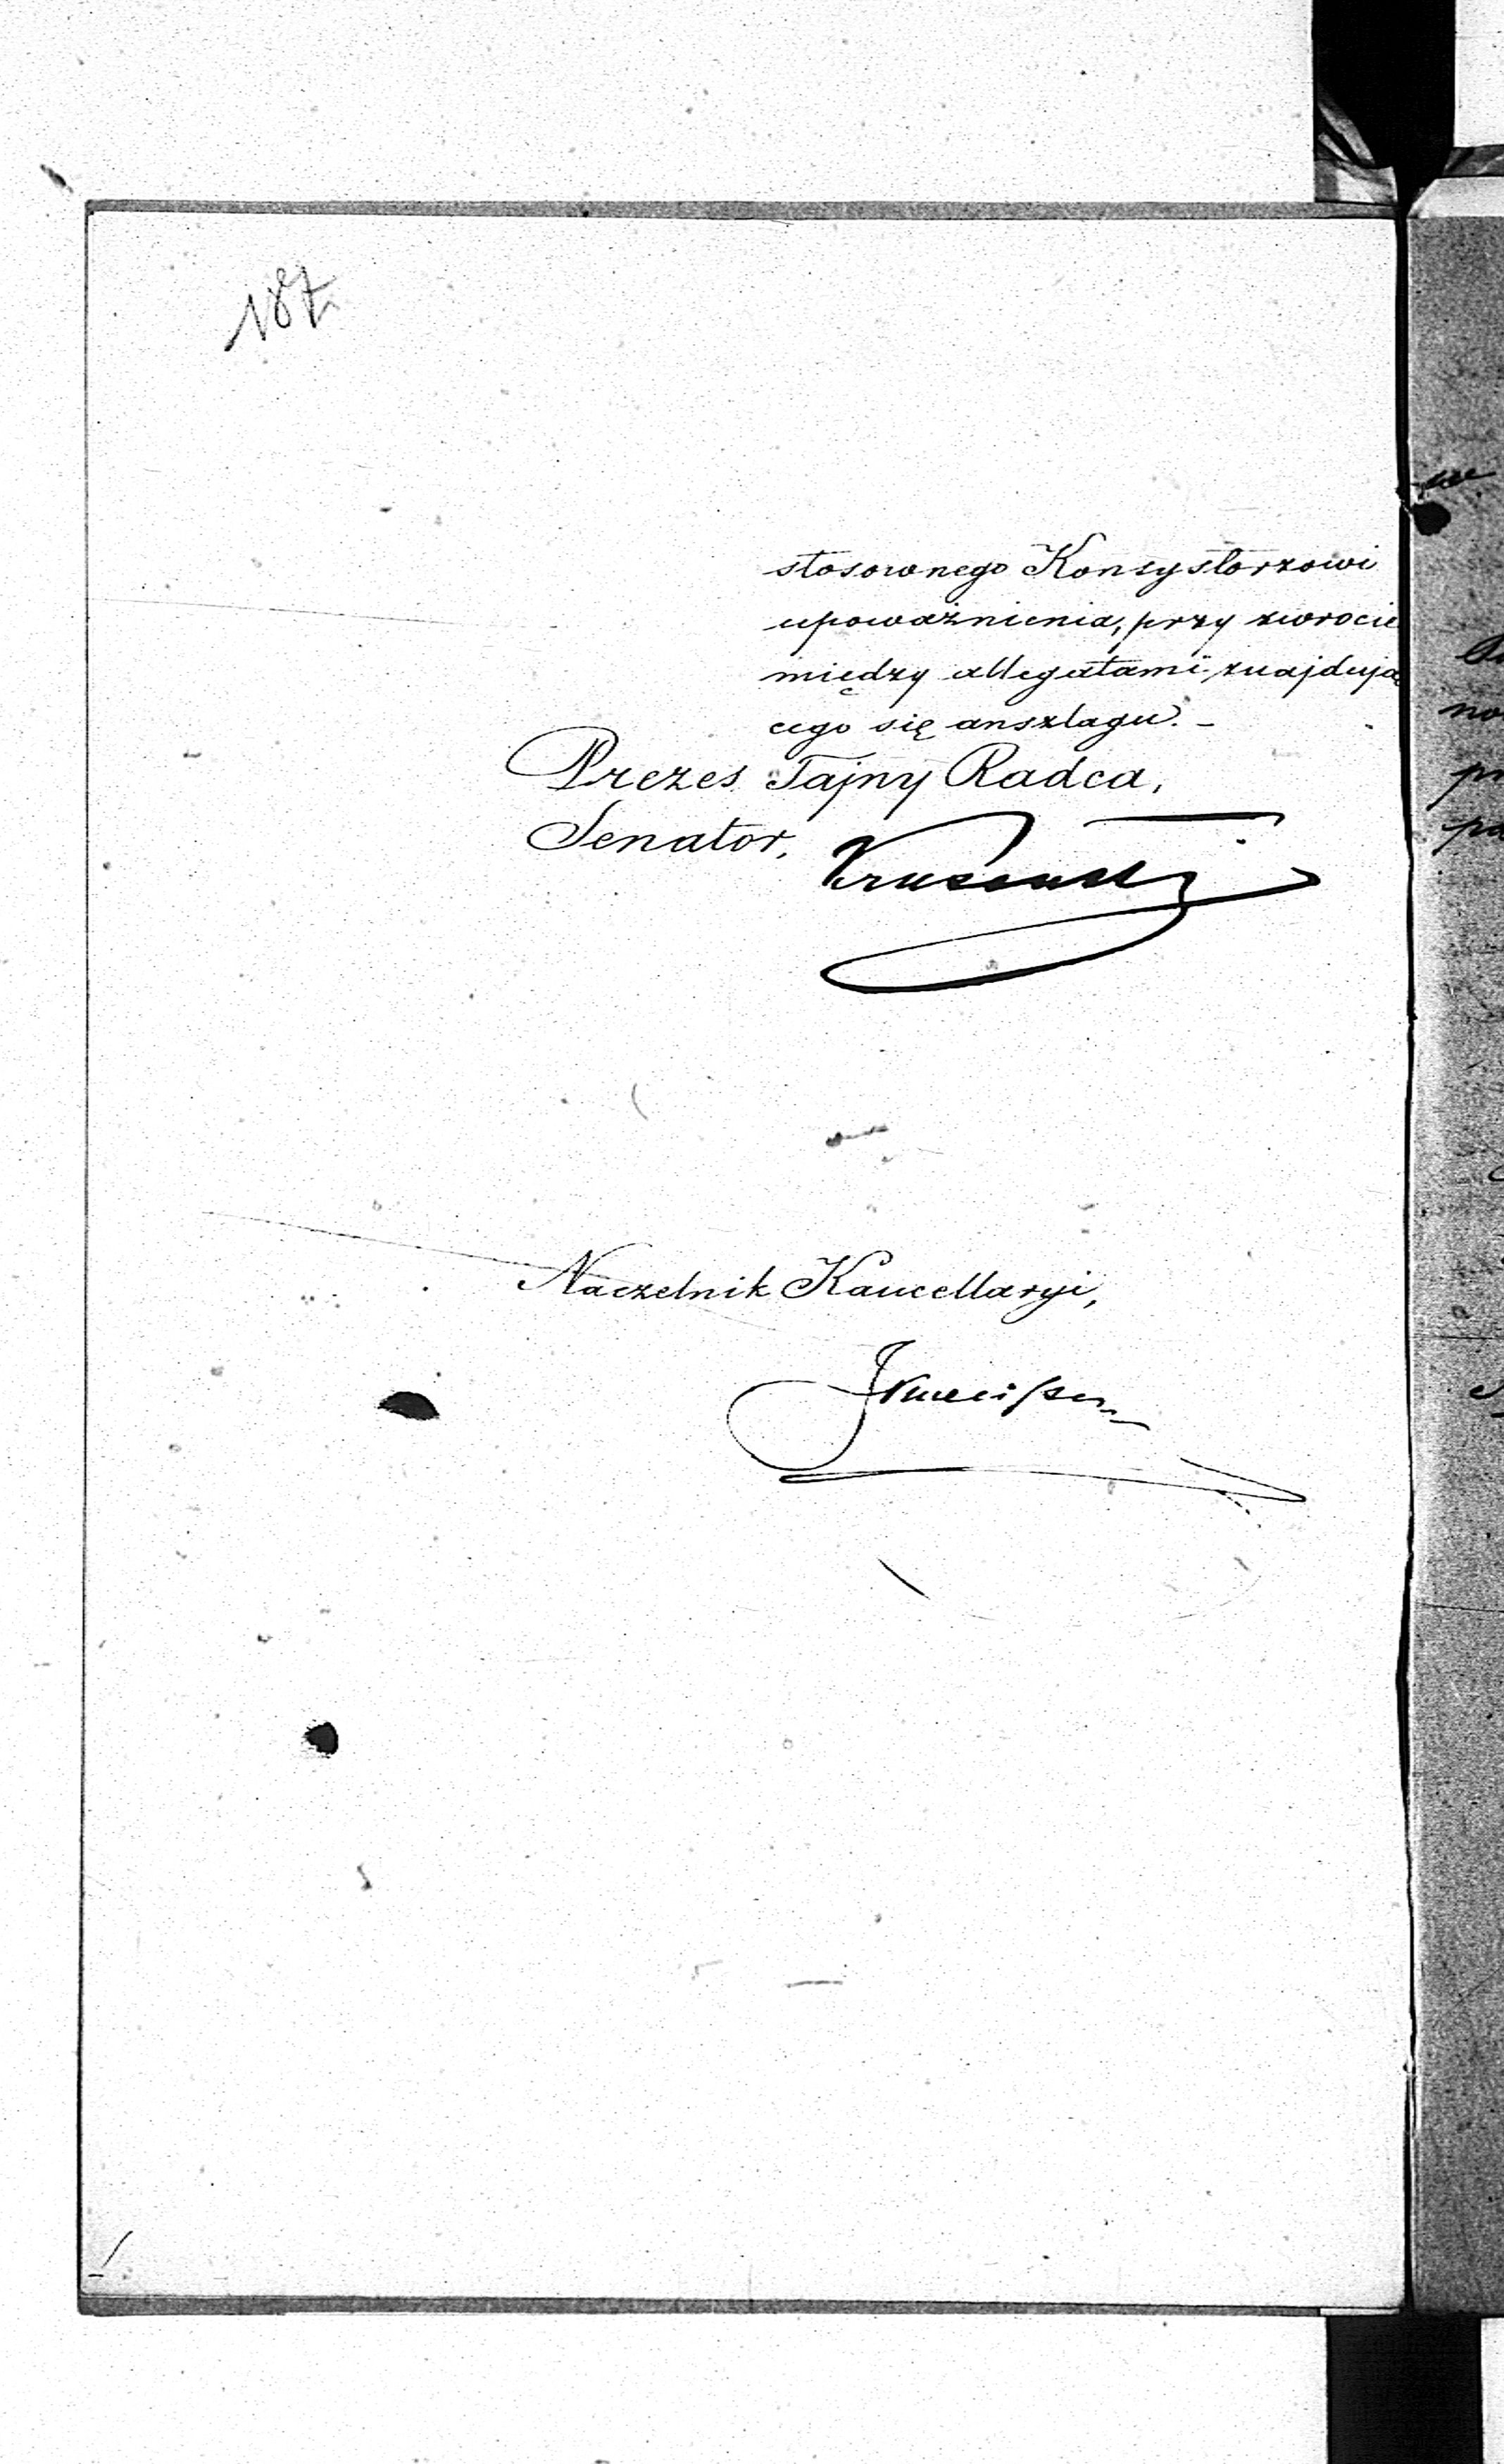 187
stosownego Konsystorzowi
upoważnienia, przy zwrocie
między allegatami znajdują
cego się anszlagu. –
Prezes Tajny Radca,
Senator,
Naczelnik Kancellaryi,